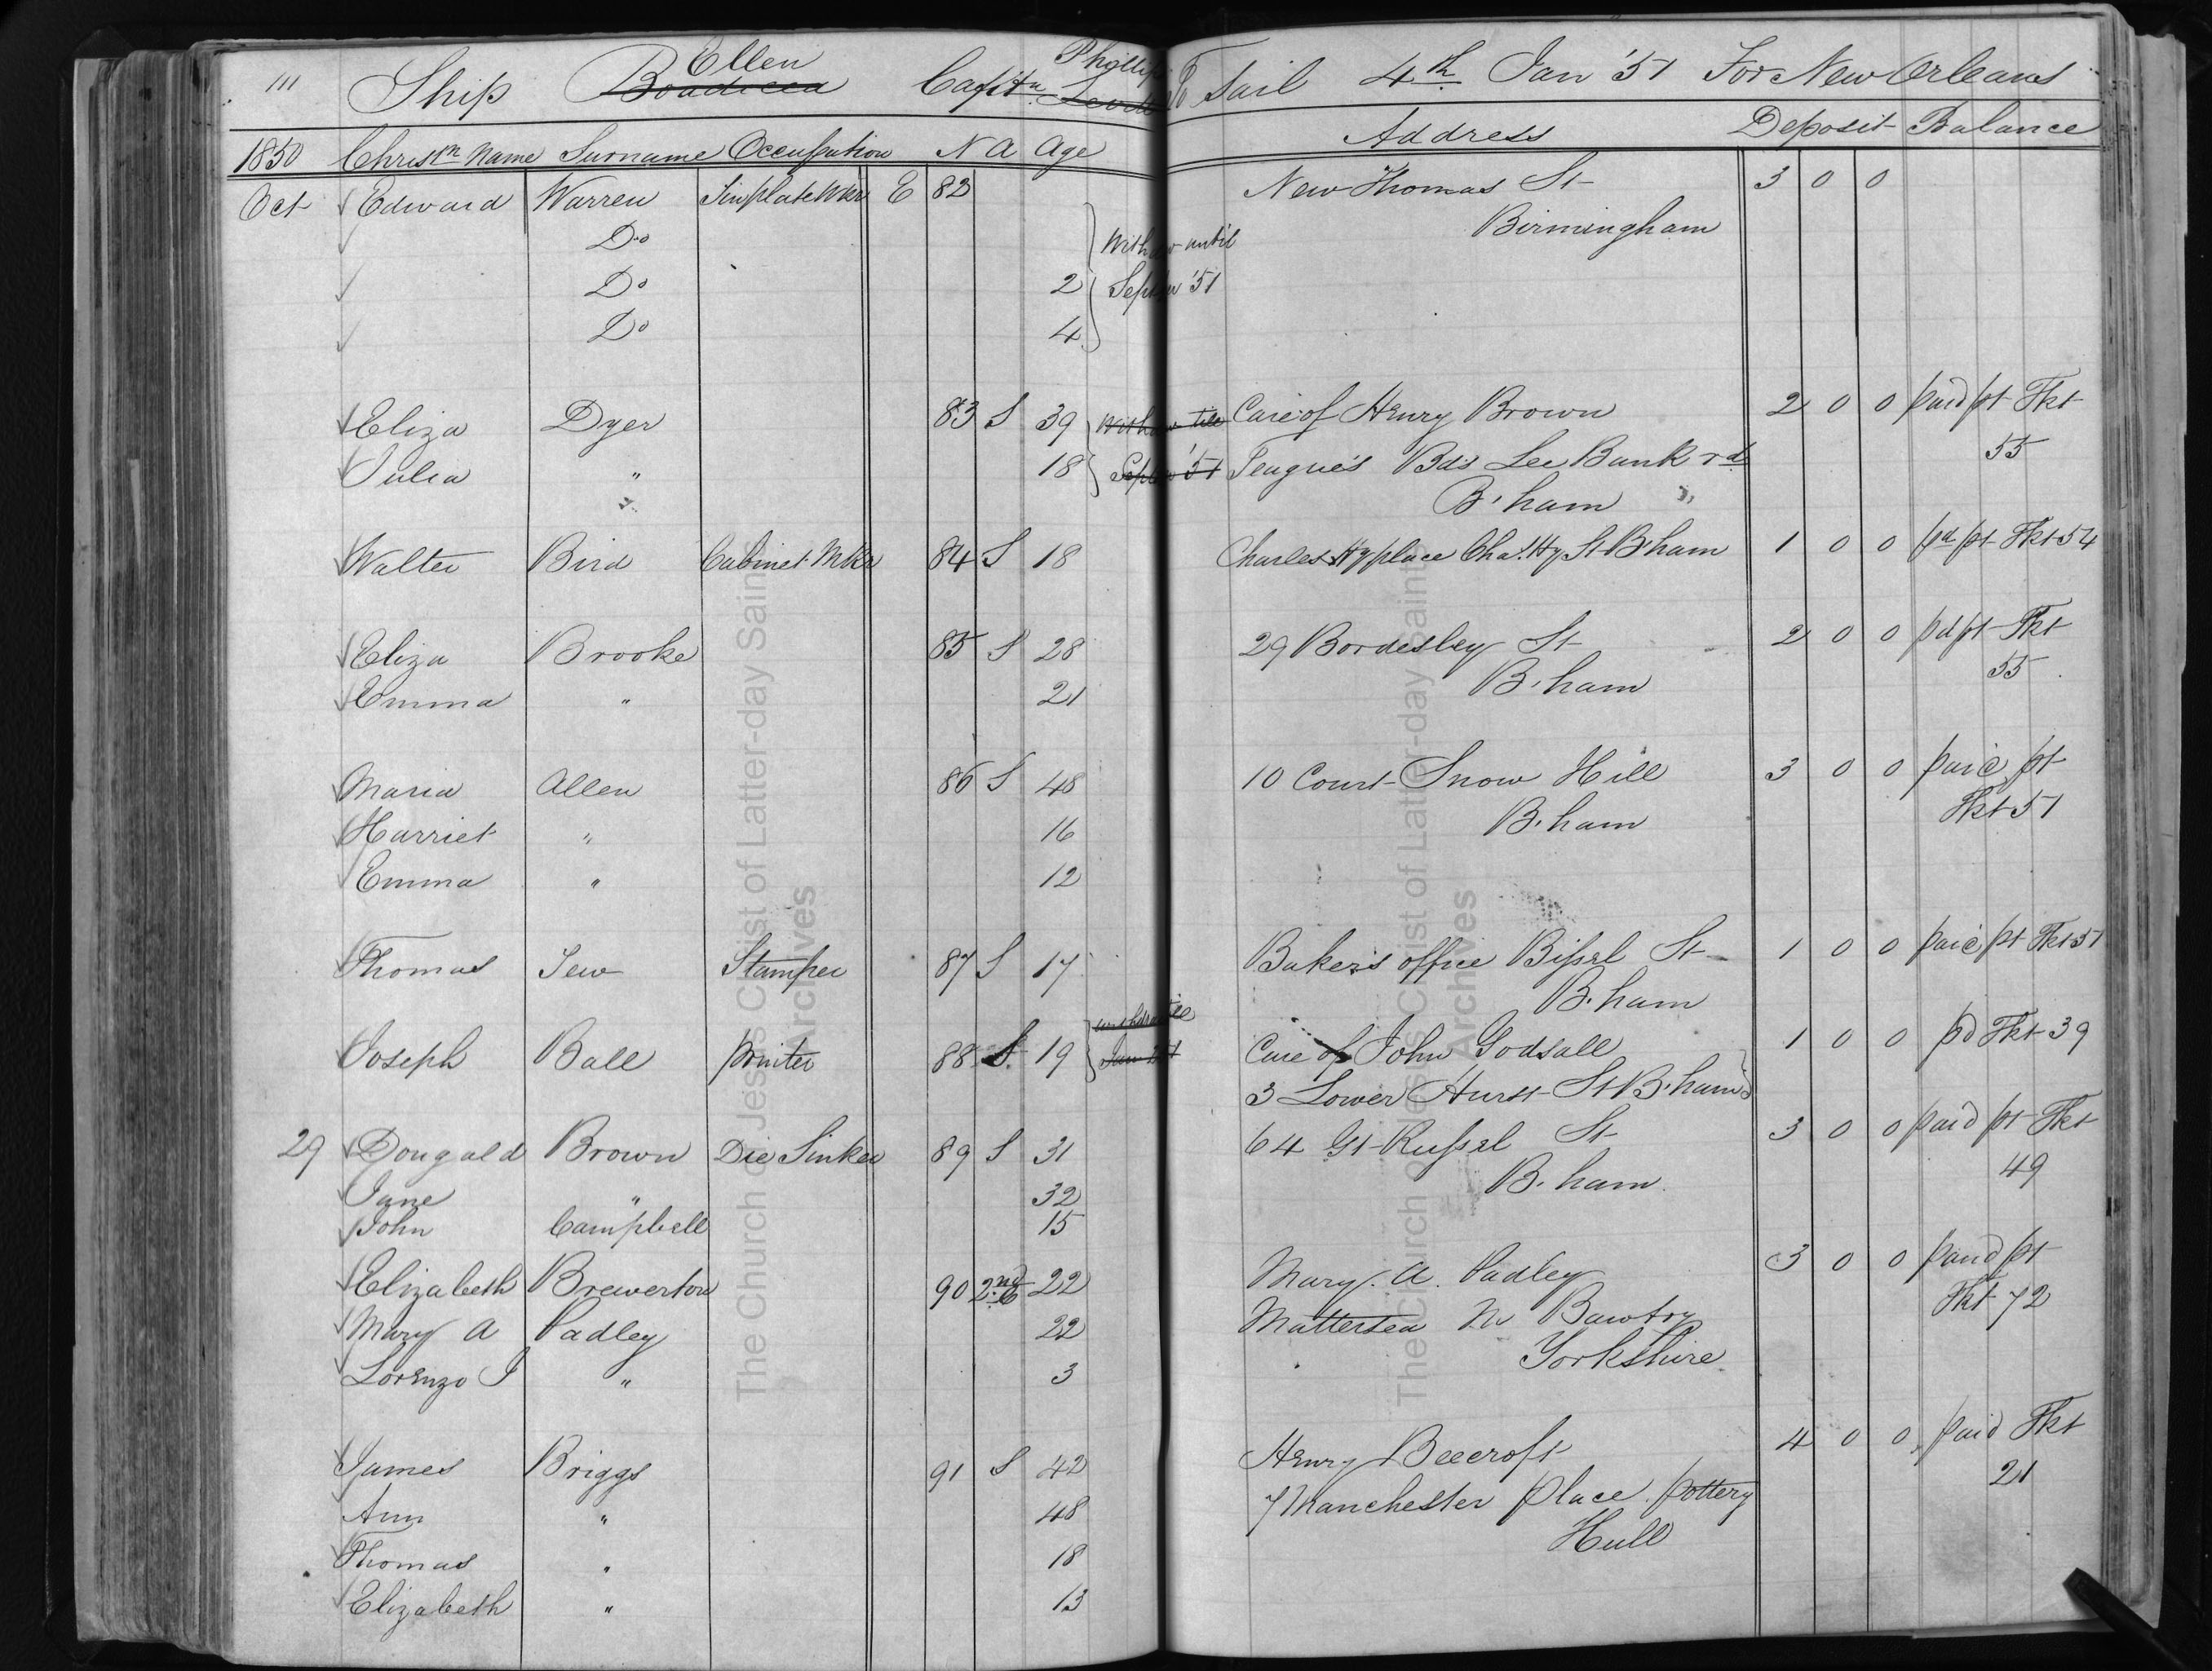 111 Ship Boadicea Ellen Captn Phillips To Sail 4th Jan '51 For New Orleans
1850 Christn Name Surname Occupation N A Age Address Deposit Balance
Oct Edward Warren Tinplate Wkr E 82 New Thomas St 3 0 0
Do Withdrw until Birmingham
Do 2 Septem '51
Do 4
Eliza Dyer 83 S 39 Withdrw till Care of Henry Brown 2 0 0 paid pt Tkt
Julia " 18 Septem '51 Teague's Bds Lee Bank rd 55
" B'ham "
Walter Bird Cabinet Mkr 84 S 18 Charles Hy place Chas. Hy St B'ham 1 0 0 pd pt Tkt 54
Eliza Brooke 85 S 28 29 Bordesley St 2 0 0 pd pt Tkt
Emma " 21 B'ham 55
Maria Allen 86 S 48 10 Court Snow Hill 3 0 0 paid pt
Harriet " 16 B.ham Tkt 51
Emma " 12
Thomas Jew Stamper 87 S 17 Baker's office Bissel St 1 0 0 paid pt Tkt 51
B.ham
Joseph Ball printer 88 S 19 withdrw till Care of John Godsall 1 0 0 pd Tkt 39
3 Lower Hurst St B'ham
29 Dougald Brown Die Sinker 89 S 31 64 Gt Russel St 3 0 0 paid pt Tkt
Jane " 32 B.ham 49
John Campbell 15
Elizabeth Brewerton 90 2nd C 22 Mary. A. Padley 3 0 0 paid pt
Mary A Padley 22 Mattersea Nr Bawtry Tkt 72
Lorenzo J " 3 Yorkshire
James Briggs 91 S 42 Henry Beecroft 4 0 0 paid Tkt
Ann " 48 7 Manchester place. pottery 21
Thomas " 18 Hull
Elizabeth " 13
The Church of Jesus Christ of Latter-day Saints
Archives
The Church of Jesus Christ of Latter-day Saints
Archives